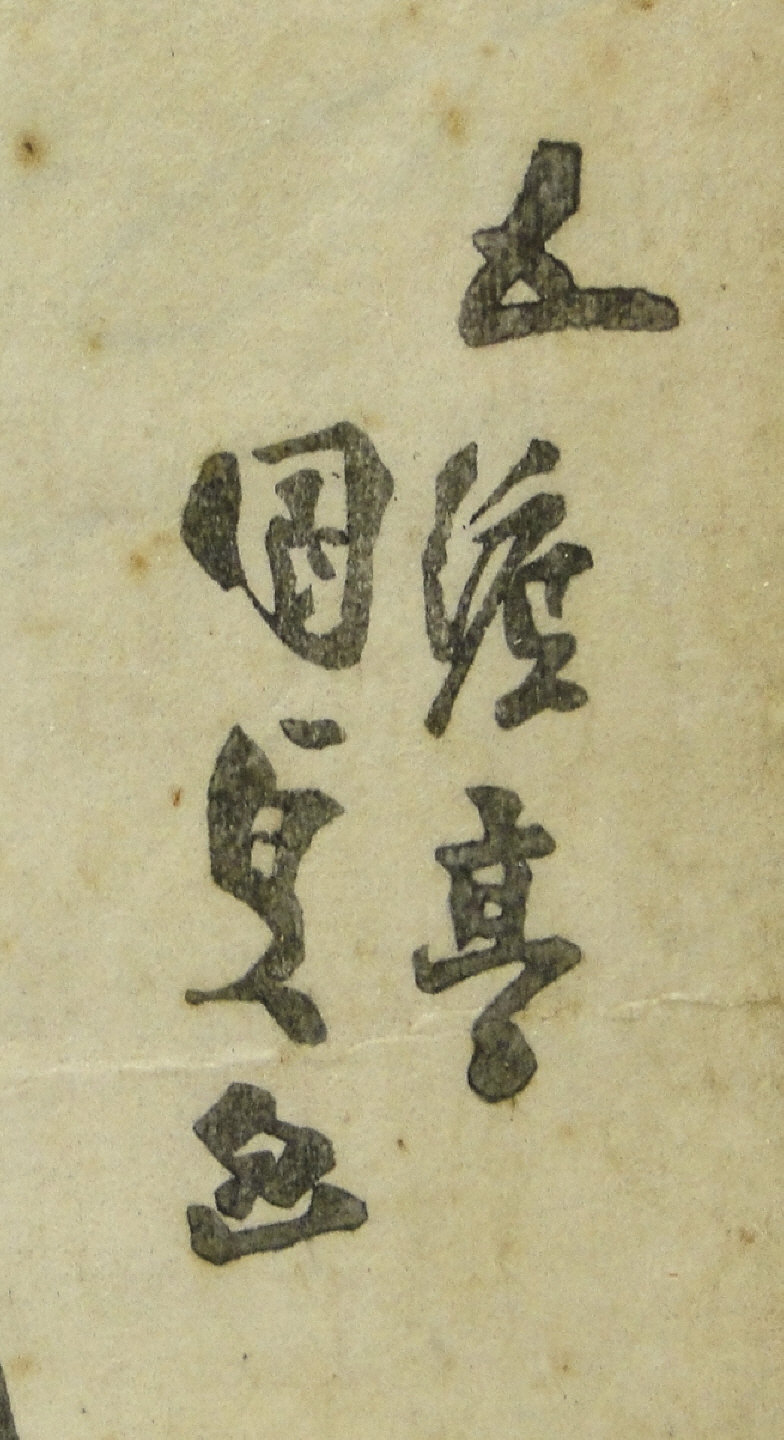 五渡亭
国貞画